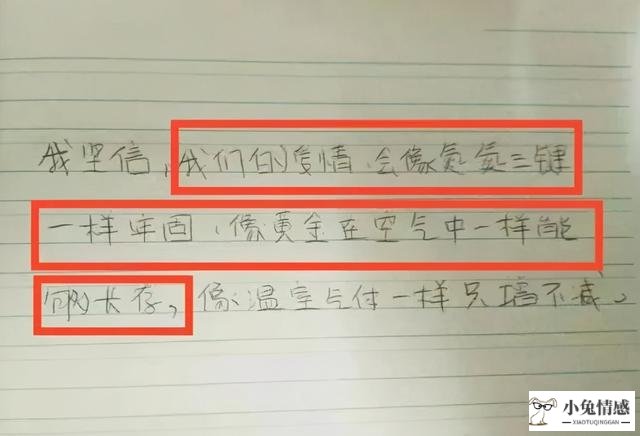 我坚信,我们的爱情会像氮氮三键
一样牢固、像黄金在空气中一样能
够长存,像温室气体一样只增不减。
小兔情感
XIAOTUQINGGAN